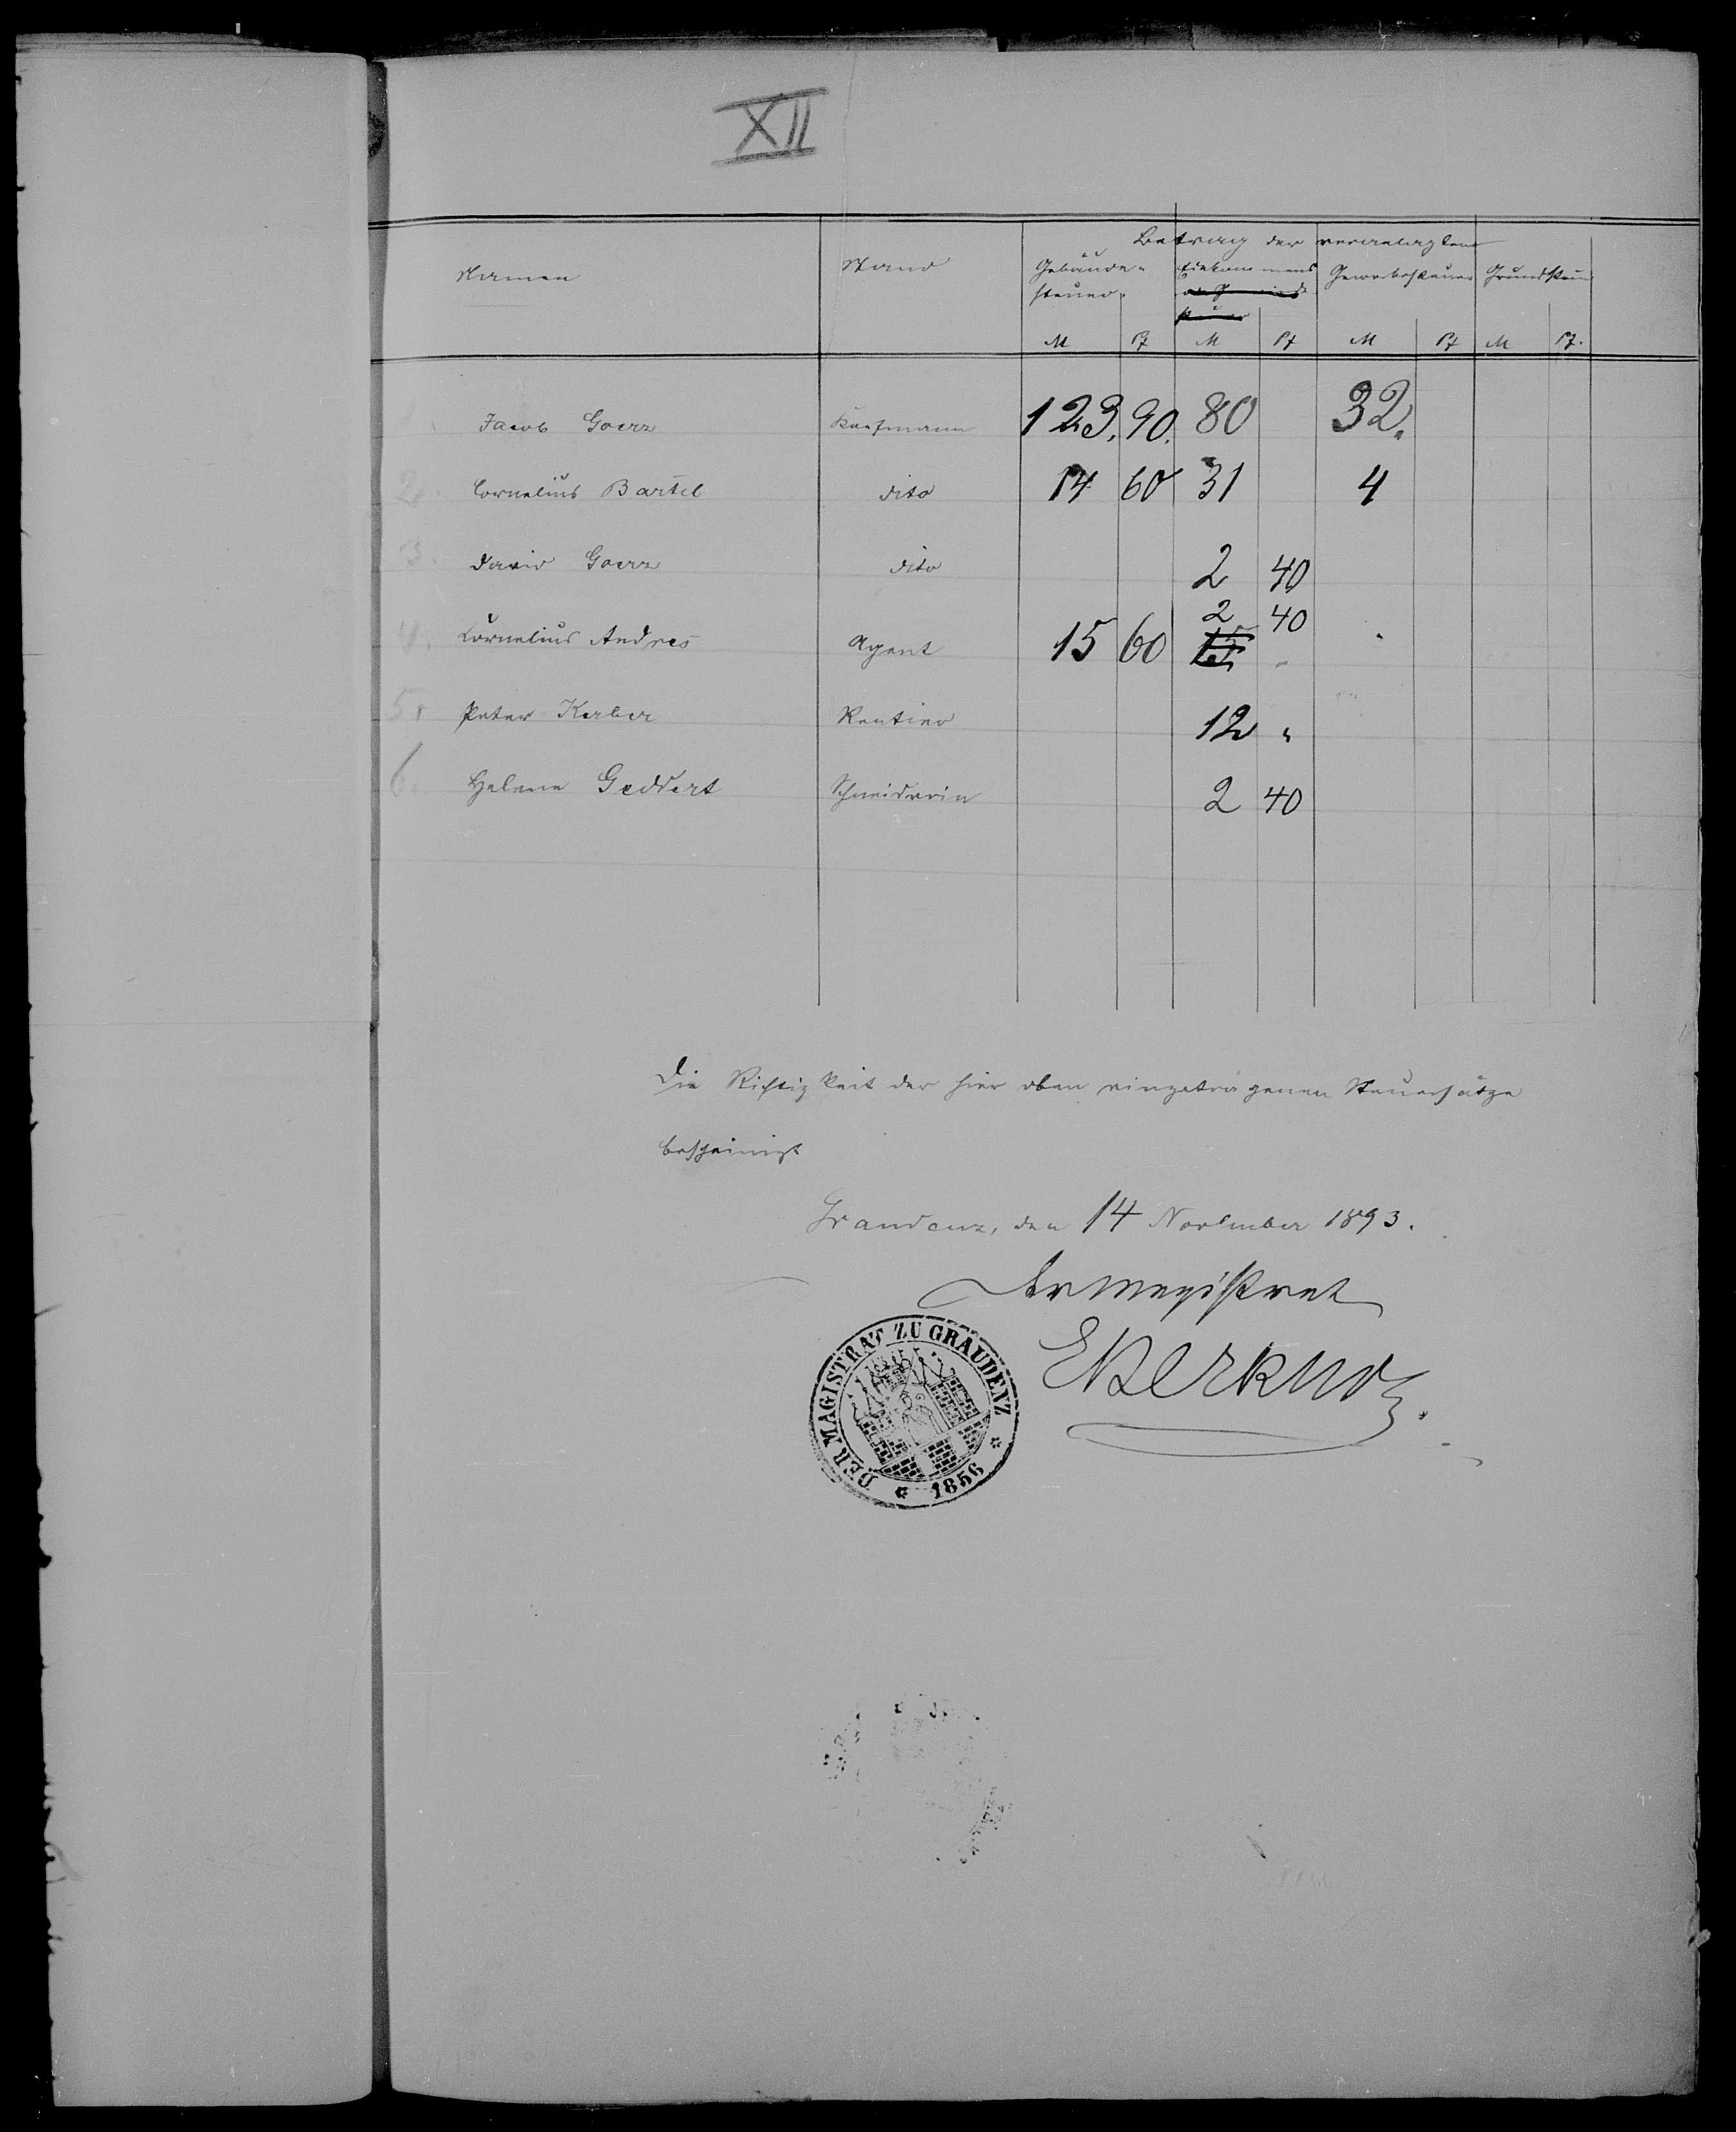 XII
Betrag der veranlagten
Namen Stand Gebäude- Einkommens Gewerbesteuer Grundsteuer
steuer.
M Pf M Pf M Pf M Pf.
1. Jacob Goerz Kaufmann 123. 90. 80 32.
2. Cornelius Bartel dito 14 60 31 4
3. David Goerz dito 2 40
2 40
4. Cornelius Andres Agent 15 60 15 "
5. Peter Kerber Rentier 12 "
6. Helene Geddert Schneiderin 2 40
Die Richtigkeit der hier oben eingetragenen Steuersätze
bescheinigt
Graudenz, den 14 November 1893.
Der Magistrat
DER MAGISTRAT ZU GRAUDENZ
1856